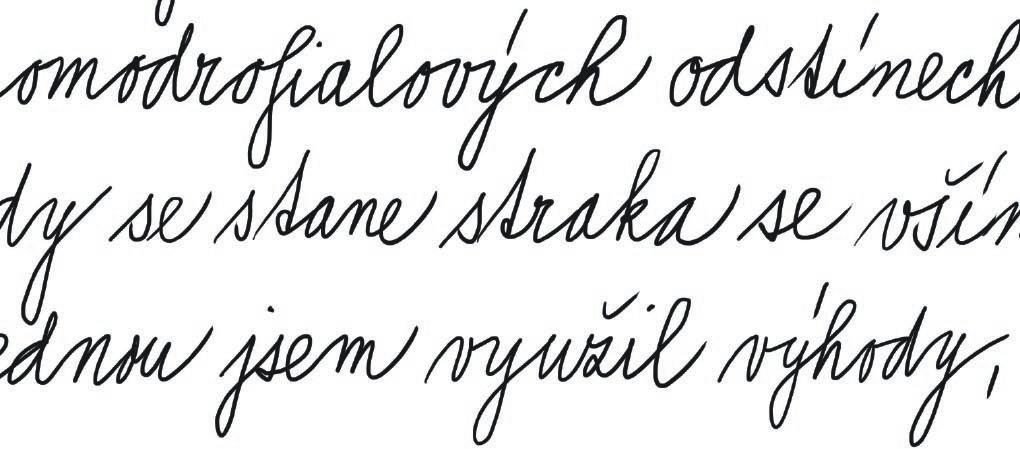 omodrofialových odstínech
dy se stane straka se vším
ednou jsem využil výhody,